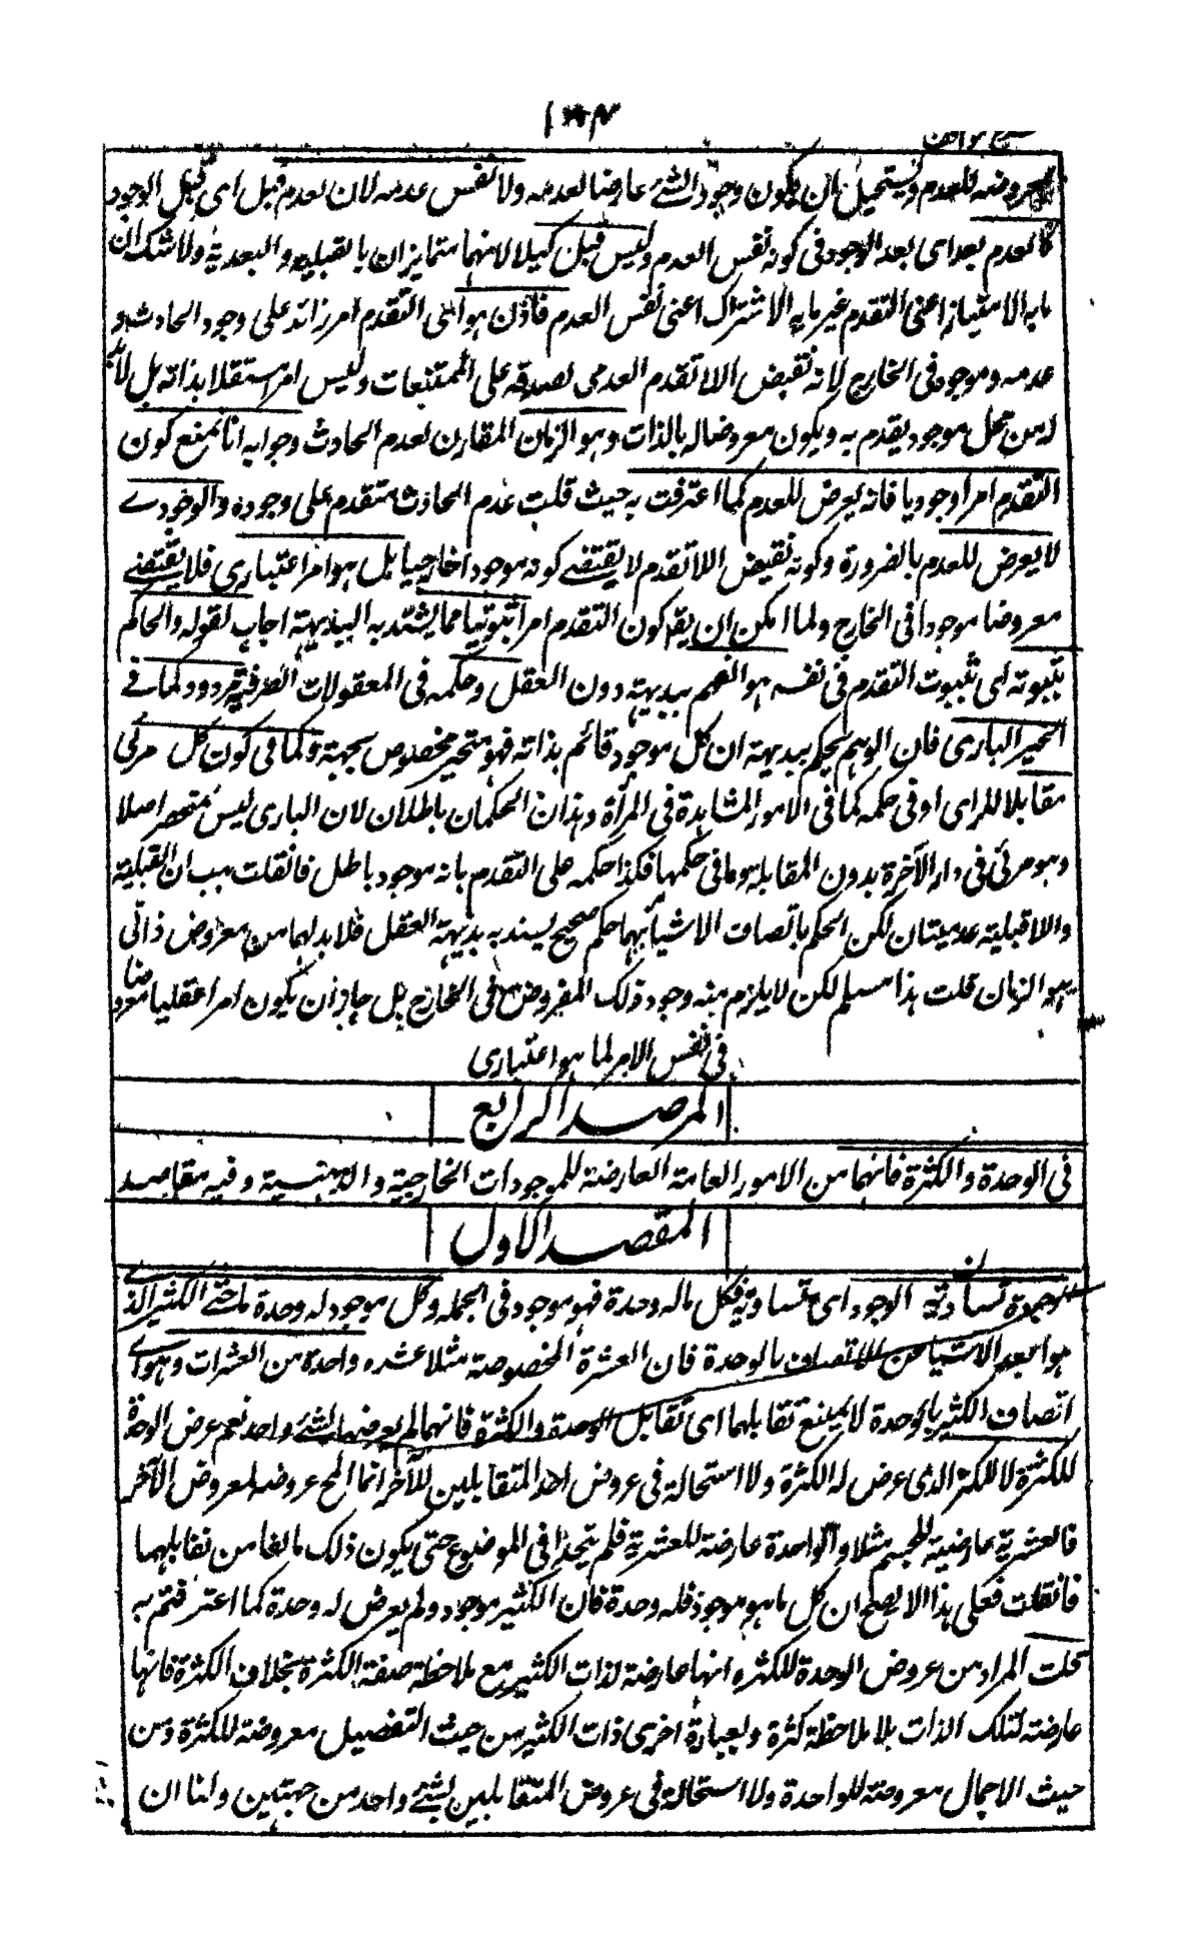 شرح مواقف
عروضه للعدم ويستحيل بان يكون وجود الشئ عارضا لعدمه ولا نفس عدمه لان لعدم قبل اى قبل الوجود
كالعدم بعد اى بعد الوجود فى كونه نفس العدم وليس قبل كيلا لانهما متمايزان بالقبليه والبعدية ولا شك ان
ما به الامتياز اعنى التقدم غير ما به الاشتراك اعنى نفس العدم فاذن هو اعنى التقدم امر زائد على وجود الحادث و
عدمه وموجود فى الخارج لانه نقيض اللاتقدم العدمى لصدقه على الممتنعات وليس امرا مستقلا بذاته بل لابد
له من محل موجود يقدم به ويكون معروضا له بالذات وهو الزمان المقارن لعدم الحادث وجوابه انا نمنع كون
التقدم امرا وجوديا فانه يعرض للعدم كما اعترفت به حيث قلت عدم الحادث متقدم على وجوده والوجودے
لا يعرض للعدم بالضرورة وكونه نقيض اللاتقدم لا يقتضے كونه موجودا خارجيا بل هو امر اعتبارى فلا يقتضے
معروضا موجودا فى الخارج ولما امكن ان يقع كون التقدم امرا ثبوتيا مما يشهد به البديهة اجاب لقوله والحاكم
بثبوته اى ثبوت التقدم فى نفسه هو الوهم ببديهته دون العقل وحكمه فى المعقولات الصرفة مردود كما فے
التحيز البارى فان الوهم يحكم ببديهته ان كل موجود قائم بذاته فهو متحيز مخصوص بجهة وكما فى كون كل مرئى
مقابلا للراى او فى حكمه كما فى الامور المشاهدة فى المرآة وهذان الحكمان باطلان لان البارى ليس بمتحيز اصلا
وهو مرئى فى دار الآخرة بدون المقابلة وما فى حكمها فكذا حكمه على التقدم بانه موجود باطل فانقلت هب ان القبلية
والاقبلية عدميتان لكن الحكم باتصاف الاشياء بهما حكم صحيح يسند به بديهة العقل فلابد لهما من معروض ذاتى
هو الزمان قلت هذا مسلم لكن لا يلزم منه وجود ذلك المفروض فى الخارج بل جاز ان يكون امرا عقليا معروضا
فى نفس الامر لما هو اعتبارى
المرصد الرابع
فى الوحدة والكثرة فانهما من الامور العامة العارضة للموجودات الخارجية والذهنية وفيه مقاصد
المقصد الاول
الوحدة تساوق الوجود اى تساويه فكل ماله وحدة فهو موجود فى الجملة وكل موجود له وحدة ما حتى الكثير الذے
هو ابعد الاشياء عن الاتصاف بالوحدة فان العشرة المخصوصة مثلا عشره واحدة من العشرات وهو اے
اتصاف الكثير بالوحدة لا يمنع تقابلهما اى تقابل الوحدة والكثرة فانهما لم يعرضا لشئے واحد نعم عرض الوحدة
للكثرة لا للكثير الذى عرض له الكثرة ولا استحالة فى عروض احد المتقابلين للآخر انما المح عروضه لمعروض الآخر
فالعشرية عارضية للجسم مثلا والواحدة عارضة للعشرية فلم يتحدا فى الموضوع حتى يكون ذلك مانعا من تقابلهما
فانقلت فعلى هذا لا يصح ان كل ما هو موجود فله وحدة فان الكثير موجود ولم يعرض له وحدة كما اعترفتم به
قلت المراد من عروض الوحدة للكثره انها عارضة لذات الكثير مع ملاحظة صفة الكثرة بخلاف الكثرة فانها
عارضة لتلك الذات بلا ملاحظة كثرة وبعبارة اخرى ذات الكثير من حيث التفصيل معروضة للكثرة ومن
حيث الاجمال معروضة للواحدة ولا استحالة فى عروض المتقابلين لشئے واحد من جهتين ولنا ان